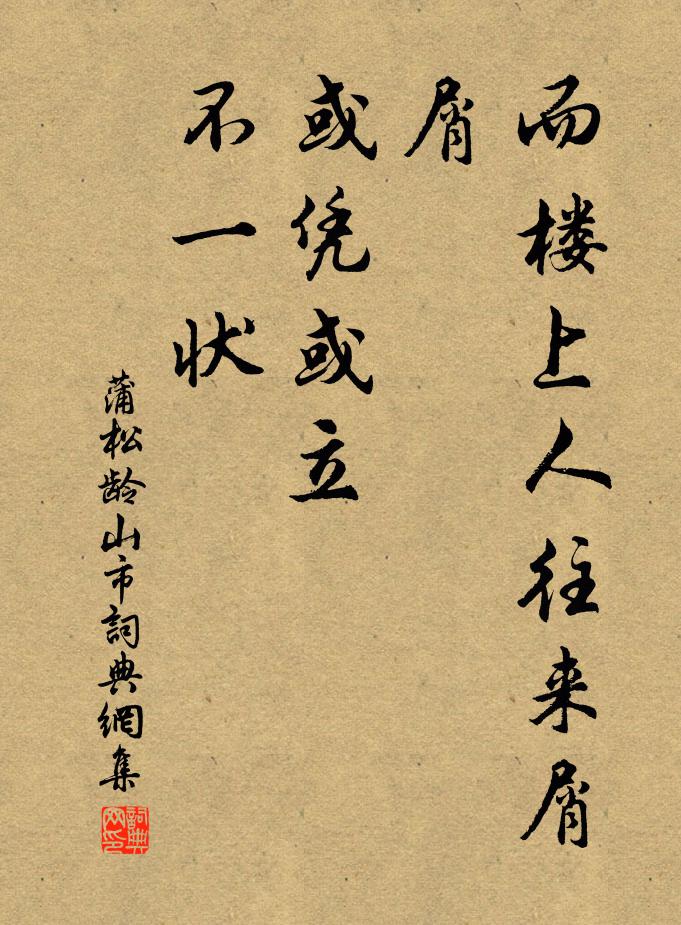 而楼上人往来屑
屑
或凭或立
不一状
蒲松龄山市詞典網集
詞典网印